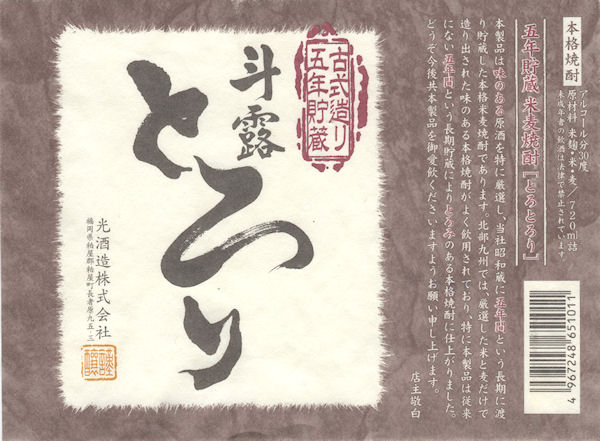 本格焼酎
アルコール分30度
原材料 米麹・米・麦／720ml詰
未成年者の飲酒は法律で禁止されています。
五年貯蔵 米麦焼酎『とろとろり』
本製品は味のある原酒を特に厳選し、当社昭和蔵に五年間という長期に渡
り貯蔵した本格米麦焼酎であります。北部九州では、厳選した米と麦だけで
造り出された味のある本格焼酎がよく飲用されており、特に本製品は従来
にない五年間という長期貯蔵によりとろみのある本格焼酎に仕上がりました。
どうぞ今後共本製品を御愛飲くださいますようお願い申し上げます。
店主敬白
4 967248 651011
古式造り
五年貯蔵
斗露
とろり
光酒造株式会社
福岡県粕屋郡粕屋町長者原九五・三
謹醸